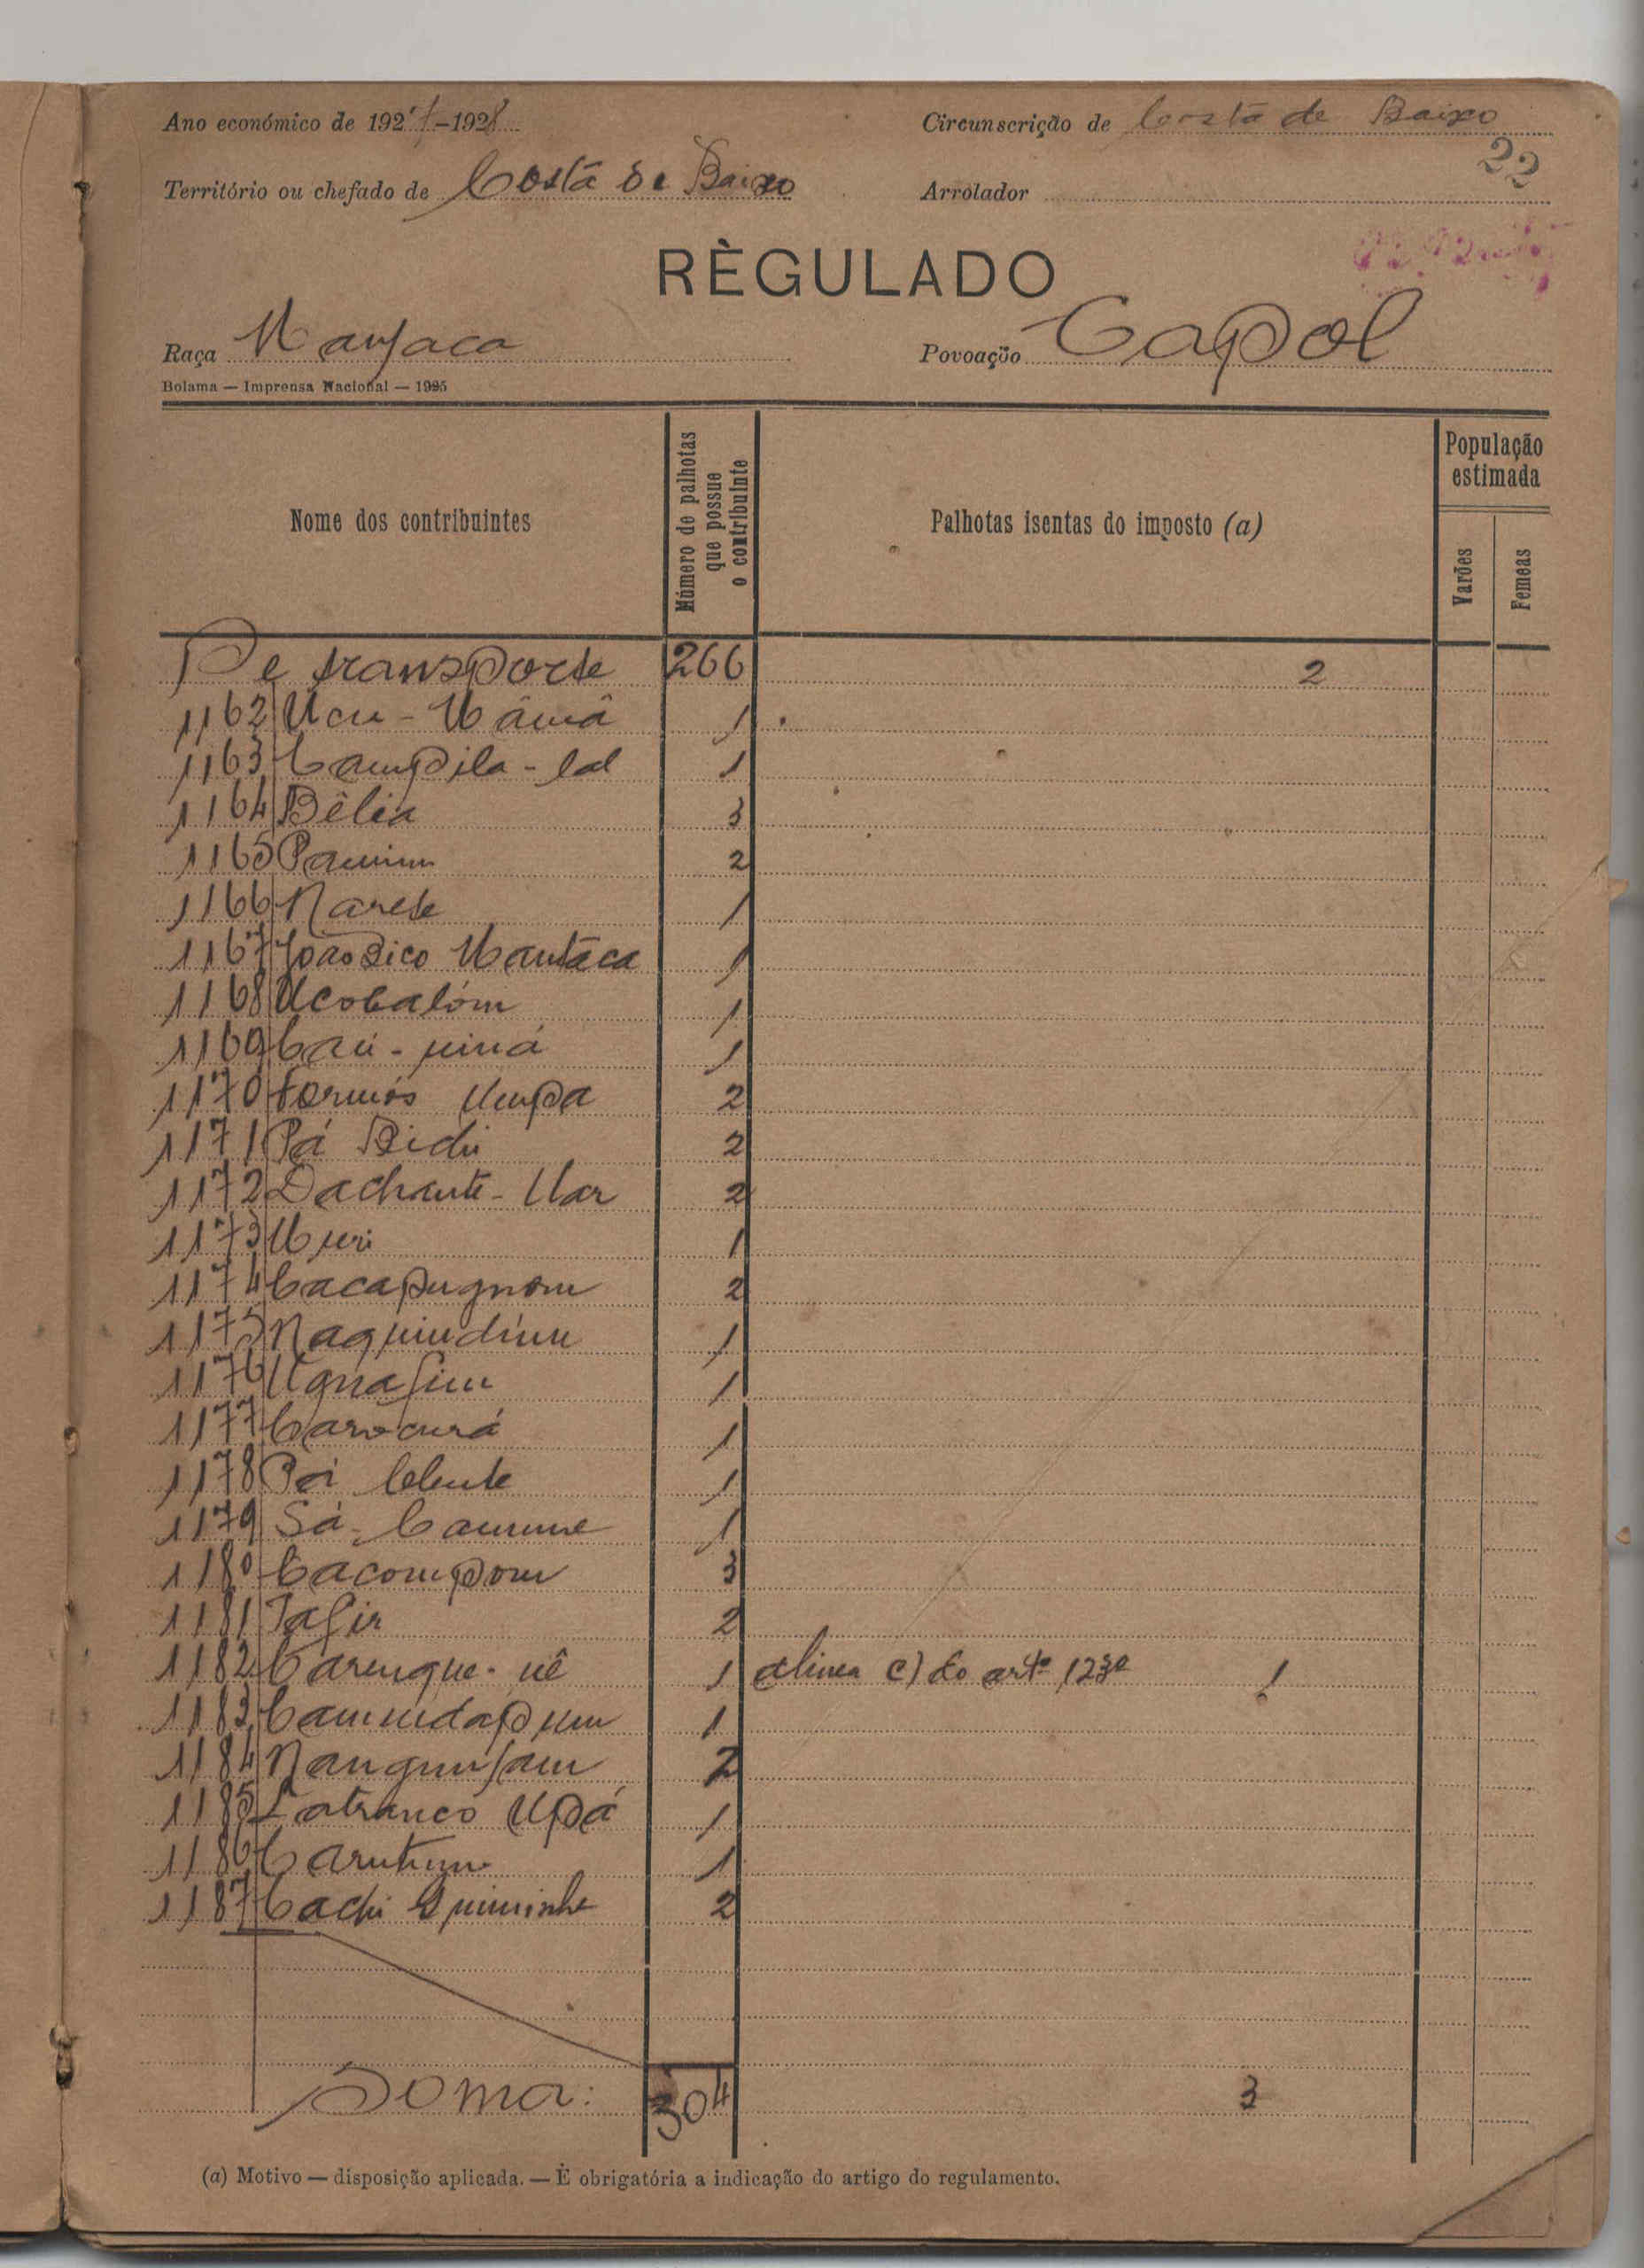 Ano económico de 1927-1928
Circunscrição de Costa de Baixo
22
Território ou chefado de Costa de Baixo
Arrolador
RÈGULADO
Raça Manjaca
Povoação Capol
Bolama — Imprensa Nacional — 1925
Nome dos contribuintes
Número de palhotas que possue o contribuinte
Palhotas isentas do imposto (a)
População estimada
Varões
Femeas
De transporte 266 2
1162 Ucu - Mámâ 1
1163 Campila - lal 1
1164 Bélia 3
1165 Paninn 2
1166 Narete 1
1167 João Dico Mantáca 1
1168 Ucobalóm 1
1169 Caú - niná 1
1170 Formós Umpa 2
1171 Pá Bidi 2
1172 Dachante - Uar 2
1173 Muri 1
1174 Cacapugnom 2
1175 Naquindinn 1
1176 Ugnafim 1
1177 Carocurá 1
1178 Poi Clente 1
1179 Sá - Camume 1
1180 Cacompom 3
1181 Jafir 2
1182 Carenque - nê 1 alinea c) do artº 123º 1
1183 Camindapum 1
1184 Nangunfam 2
1185 Latranco Upá 1
1186 Carutum 1
1187 Cachi Quiminhe 2
Soma: 304 3
(a) Motivo — disposição aplicada. — É obrigatória a indicação do artigo do regulamento.